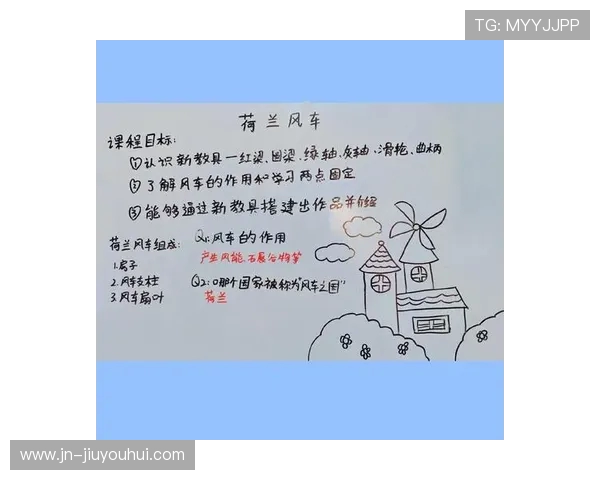 TG: MYYJJPP
荷兰风车
课程目标:
①认识新教具一红梁、圆梁、绿轴、灰轴、滑轮、曲柄
②了解风车的作用和学习两点固定
③能够通过新教具搭建出作品并介绍
荷兰风车组成:
1.房子
2.风车支柱
3.风车扇叶
Q1:风车的作用
产生风能、石磨谷物等
Q2:哪个国家被称为"风车之国"
荷兰
www.jn-jiuyouhui.com